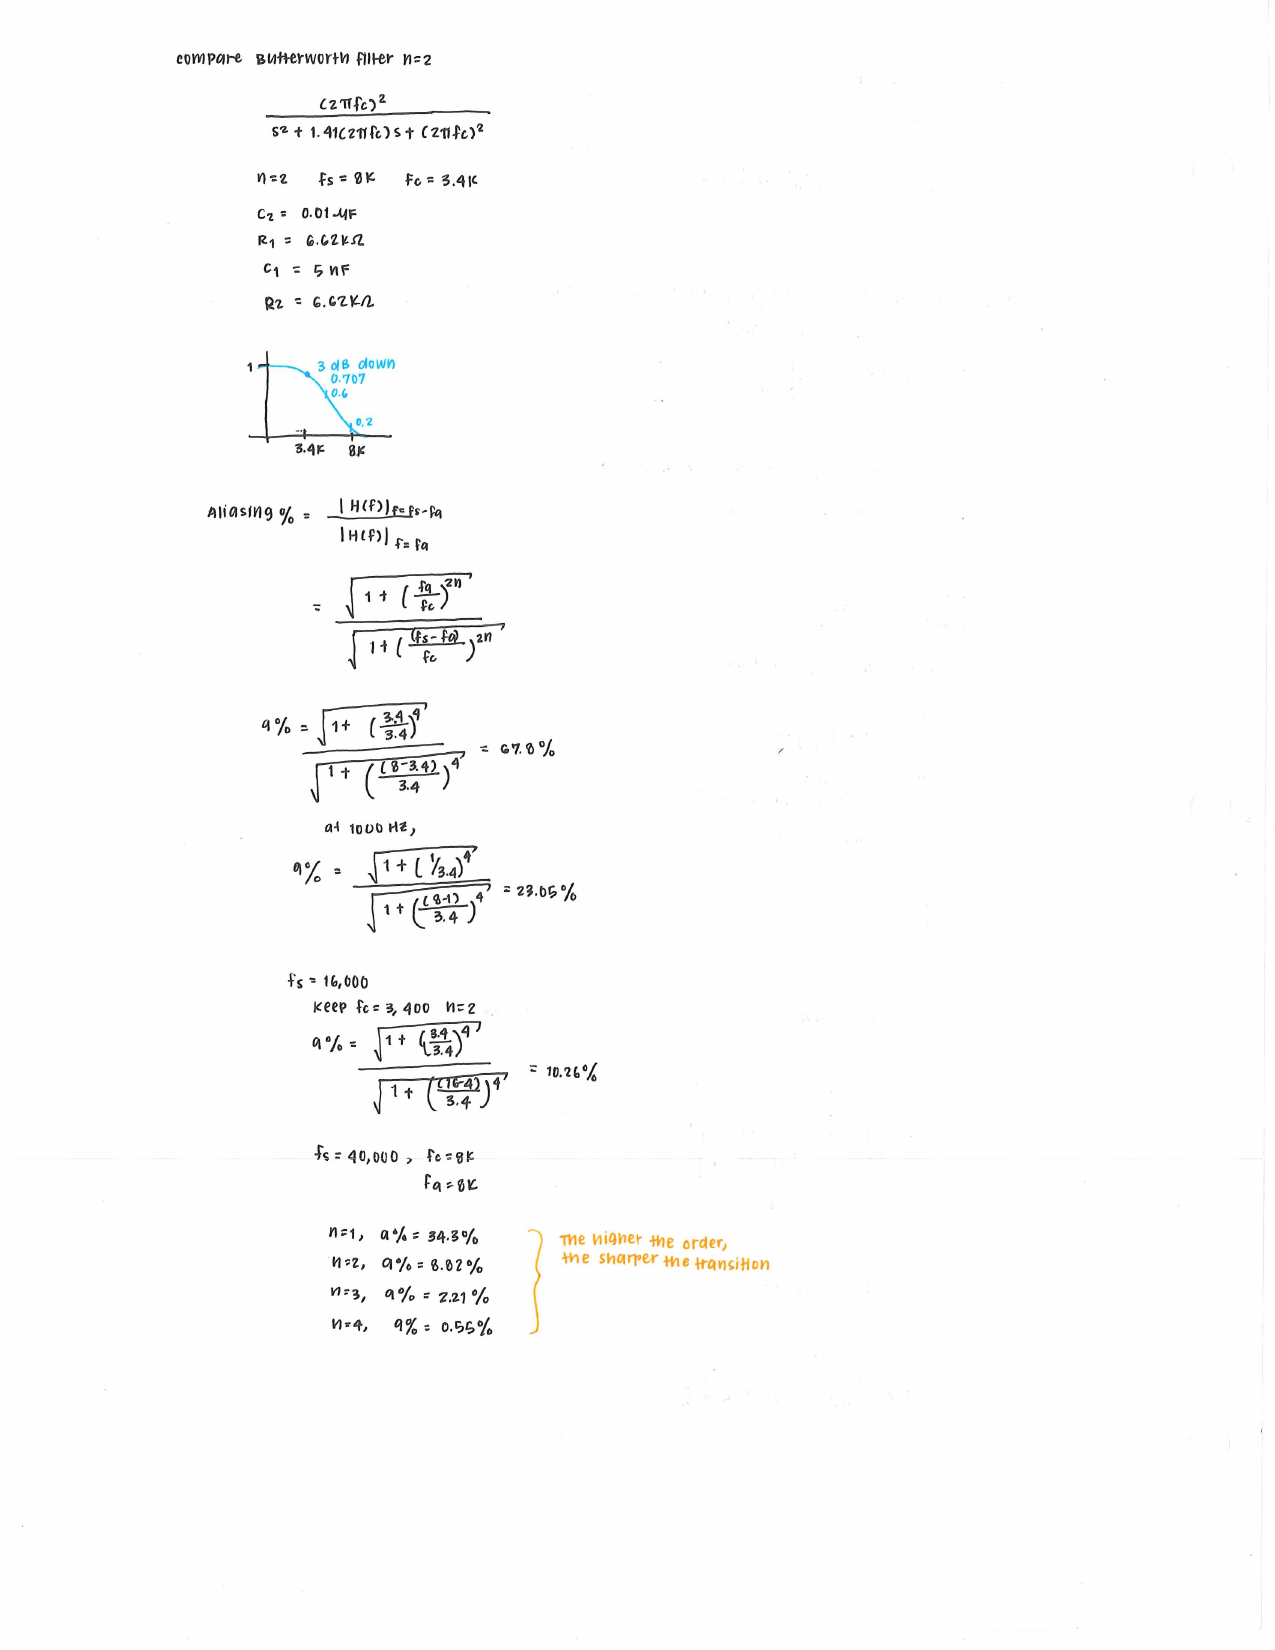 compare Butterworth filter n=2
(2πfc)²
s² + 1.41(2πfc)s + (2πfc)²
n=2 fs = 8K fc = 3.4K
C2 = 0.01 μF
R1 = 6.62KΩ
C1 = 5 nF
R2 = 6.62KΩ
1
3 dB down
0.707
0.6
0.2
3.4K 8K
Aliasing % = |H(f)| f=fs-fa
|H(f)| f=fa
= √1 + (fa/fc)^2n
√1 + ((fs-fa)/fc)^2n
a% = √1+ (3.4/3.4)^4
√1 + ((8-3.4)/3.4)^4 = 67.8%
at 1000 Hz,
a% = √1 + (1/3.4)^4
√1 + ((8-1)/3.4)^4 = 23.05%
fs = 16,000
keep fc = 3,400 n=2
a% = √1 + (3.4/3.4)^4
√1 + ((16-4)/3.4)^4 = 10.26%
fs = 40,000, fc = 8K
fa = 8K
n=1, a% = 34.3%
n=2, a% = 8.82%
n=3, a% = 2.21%
n=4, a% = 0.55%
The higher the order,
the sharper the transition